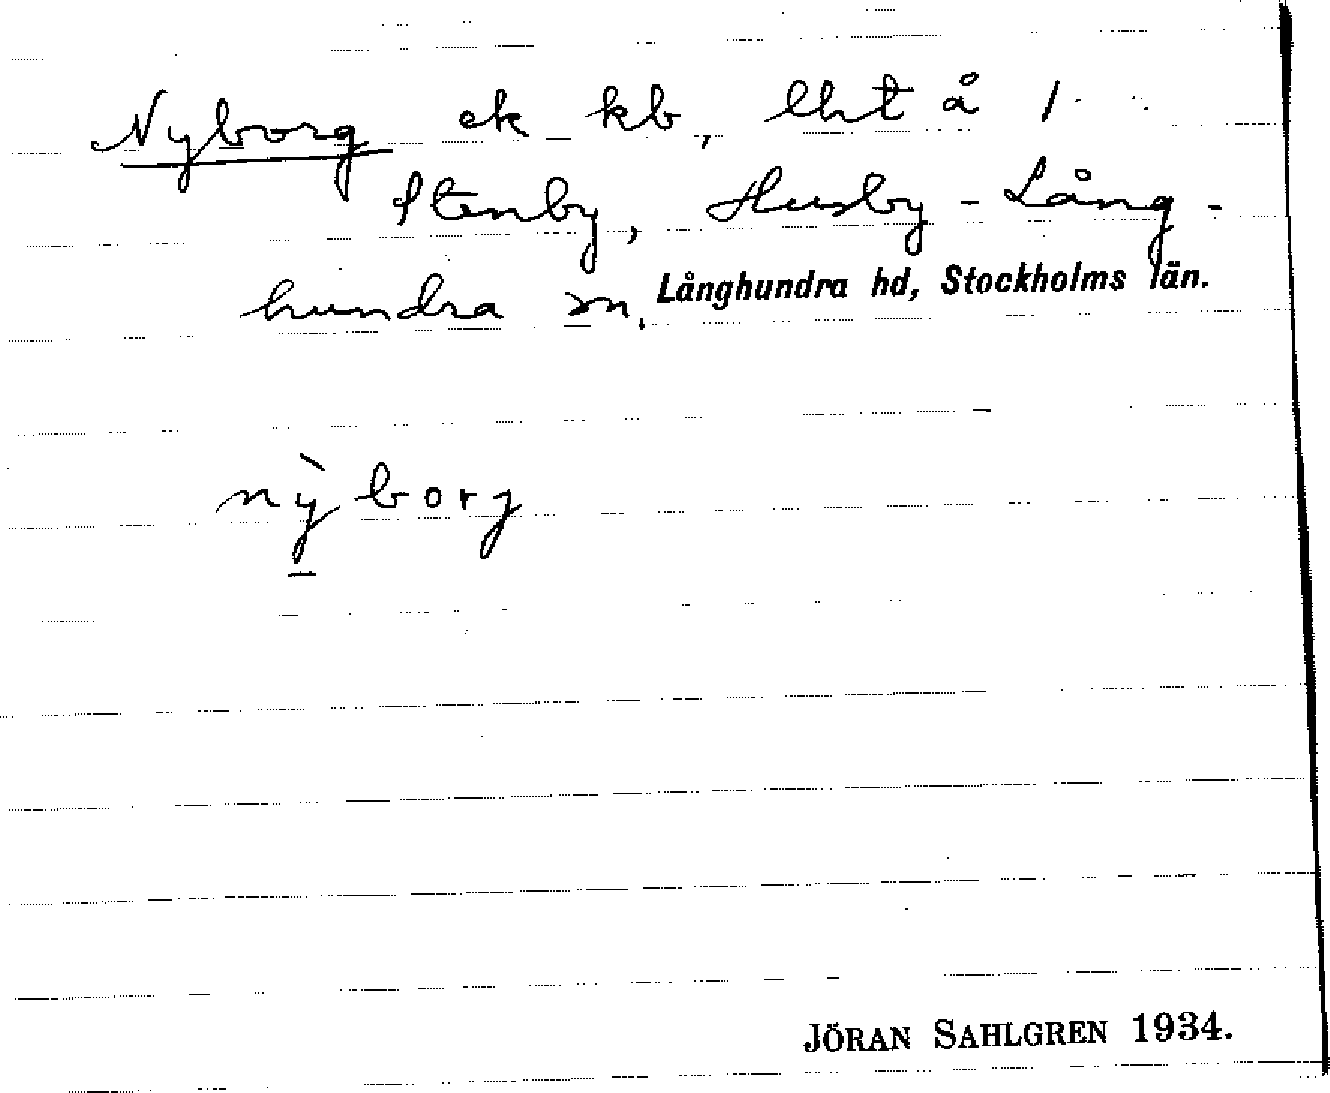 Nyborg ek kb, lht å 1
Stenby, Husby-Lång-
hundra sn, Långhundra hd, Stockholms län.
nỳ̲borg
JÖRAN SAHLGREN 1934.